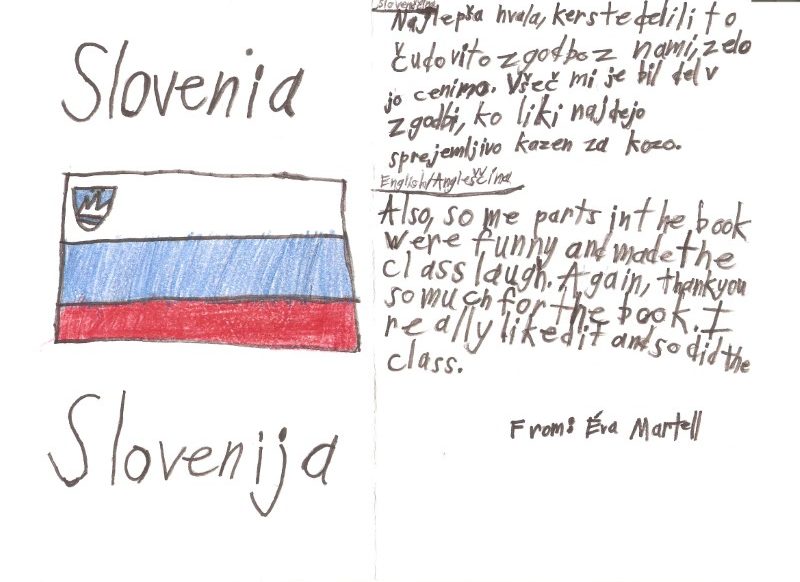 Slovenia
Slovenija
Slovenščina
Najlepša hvala, ker ste delili to
čudovito zgodbo z nami, zelo
jo cenimo. Všeč mi je bil del v
zgodbi, ko liki najdejo
sprejemljivo kazen za kozo.
English/Angleščina
Also, some parts in the book
were funny and made the
class laugh. Again, thank you
so much for the book. I
really liked it and so did the
class.
From: Eva Martell